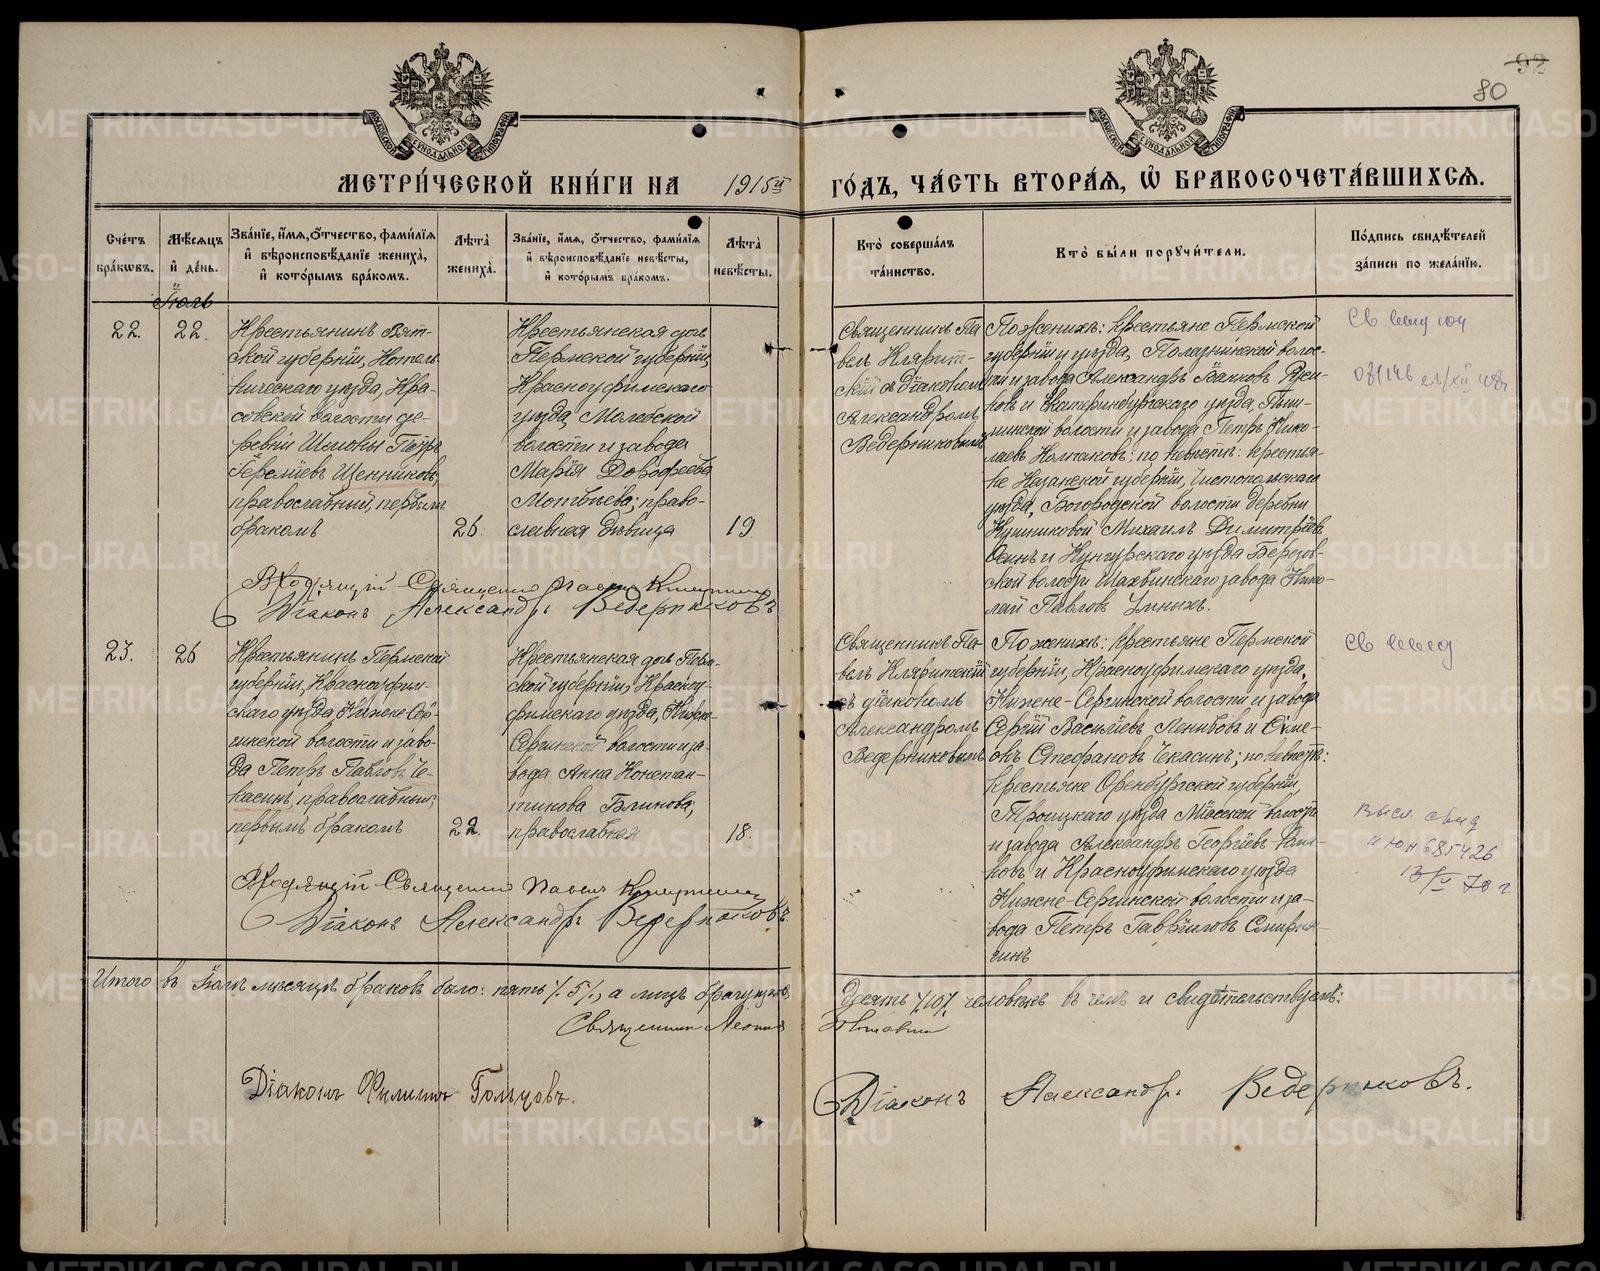 92
80
МЕТРИ́ЧЕСКОЙ КНИ́ГИ НА 1915й ГО́ДЪ, ЧА́СТЬ ВТОРА́Я, Ѽ БРАКОСОЧЕТА́ВШИХСЯ.
Сче́тъ бра́кѡвъ.
Мѣ́сѧцъ и́ де́нь.
Зва́нїе, и́мѧ, ѻ́тчество, фами́лїѧ и́ вѣроисповѣ́данїе жениха̀, и́ кото́рымъ бра́комъ.
Лѣ́та̀ жениха̀.
Зва́нїе, и́мѧ, ѻ́тчество, фами́лїѧ и́ вѣроисповѣ́данїе невѣ́сты, и́ кото́рымъ бра́комъ.
Лѣ́та̀ невѣ́сты.
Кто̀ соверша́лъ та́инство.
Кто̀ бы́ли порꙋчи́тели.
По́дпись свидѣ́телей за́писи по жела́нїю.
Іюль
22.
22.
Крестьянинъ Вят-
ской губерніи, Котель-
ническаго уѣзда, Кра-
совской волости де-
ревни Петръ
Іереміевъ Щенниковъ,
православный, первымъ
бракомъ
26.
Крестьянская дочь
Пермской губерніи,
Красноуфимскаго
уѣзда, Молебской
волости и завода
Марія Дорофеева
Мотовіева; право-
славная дѣвица
19
Священникъ Па-
велъ
скій съ діакономъ
Александромъ
Ведерниковымъ
По женихѣ: крестьяне Пермской
губерніи и уѣзда, Полазнинской волос-
ти и завода Александръ
и Екатеринбургскаго уѣзда, Пыш-
минской волости и завода Петръ Нико-
лаевъ Колпаковъ; по невѣстѣ: крестья-
не Казанской губерніи, Чистопольскаго
уѣзда, Богородской волости деревни
Михаилъ Димитріевъ
и Кунгурскаго уѣзда Березов-
ской волости Шаквинскаго завода Нико-
лай Павловъ Умныхъ.
Входящій Священникъ Павелъ
Діаконъ Александръ Ведерниковъ
23.
26
Крестьянинъ Пермской
губерніи, Красноуфим-
скаго уѣзда, Нижне-Сер-
гинской волости и заво-
да Петръ Павловъ Че-
касинъ, православный,
первымъ бракомъ
22.
Крестьянская дочь Перм-
ской губерніи, Красноу-
фимскаго уѣзда, Нижне-
Сергинской волости и за-
вода Анна Констан-
тинова Блинова;
православная
18.
Священникъ Па-
велъ
съ діакономъ
Александромъ
Ведерниковымъ
По женихѣ: крестьяне Пермской
губерніи, Красноуфимскаго уѣзда,
Нижне-Сергинской волости и завода
Сергій Васильевъ и Симе-
онъ Стефановъ Чекасинъ; по невѣстѣ:
крестьяне Оренбургской губерніи,
Троицкаго уѣзда Міасской волости
и завода Александръ Георгіевъ
и Красноуфимскаго уѣзда
Нижне-Сергинской волости и за-
вода Петръ Гавріиловъ Смирня-
гинъ
Высл. свид
685426
70 г.
Входящій Священникъ Павелъ
Діаконъ Александръ Ведерниковъ.
Итого въ Іюлѣ мѣсяцѣ браковъ было: пять /. 5/., а лицъ брачущихся десять /.10/. человѣкъ въ чемъ и свидѣтельствуемъ:
Священникъ
Діаконъ Филиппъ Гольцовъ.
Діаконъ Александръ Ведерниковъ.
METRIKI.GASO-URAL.RU